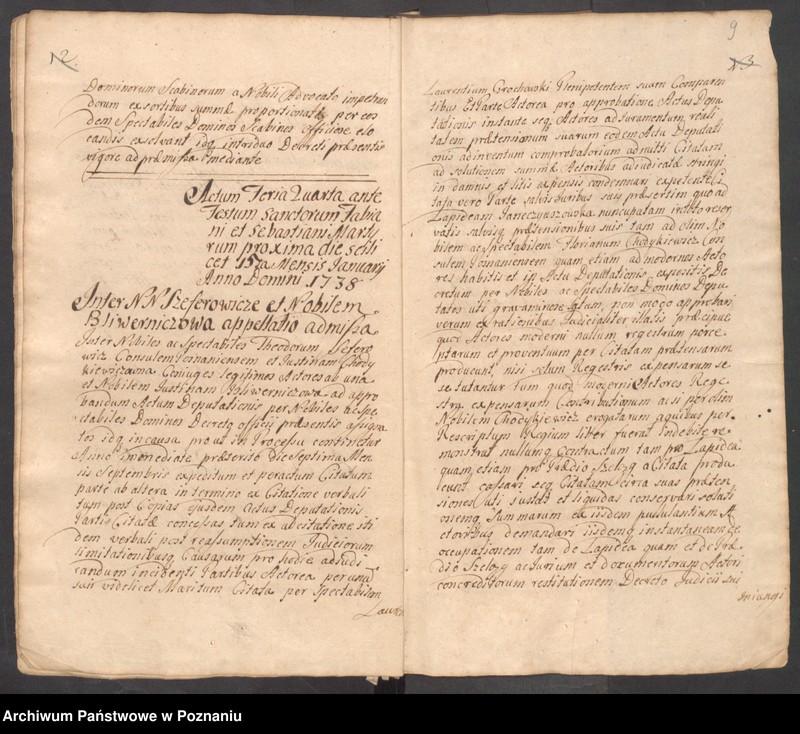 2.
Dominorum Scabinorum a Nobili Advocato impetran
dorum ex sortibus summæ proportionatæ per eos
dem Spectabiles Dominos Scabinos officiose elo
candis exsolvant idq intriduo Decreti præsentis
vigore ad præmissa mediante
Actum Feria Quarta ante
Festum Sanctorum Fabia
ni et Sebastiani Marty
rum proxima die scili
cet 15ta Mensis Januarij
Anno Domini 1738
Inter N N Szeferowicze et Nobilem
Bliwerniczowa appellatio admissa
Inter Nobiles ac Spectabiles Theodorum Szefero
wic Consulem Posnaniensem et Justinam Chody
kiewiczowna Coniuges legitimos Actores ab una
et Nobilem Justinam Bliwerniczowa ad appro
bandum Actum Deputationis per Nobiles ac Spe
ctabiles Dominos Decreto officij præsentis assigna
tos idq in causa prout in Processu continetur
Anno immediate præterito die Septima Men
sis Septembris expeditum et peractum Citatam
parte ab altera in termino ex Citatione verbali
tum post Copias ejusdem Actus Deputationis
Parti Citatæ concessas tum ex adcitatione iti
dem verbali post reassumptionem Judiciorum
limitationibusq Causarum pro hodie adjudi
candum incidenti Partibus Actorea per
sui videlicet Maritum Citata per Spectabilem
Lauren
9
3
Laurentium Grochowski Plenipotentem suum Comparen
tibus Et Parte Actorea pro approbatione Actus Depu
tationis instante seq Actores ad juramentum reali
tatem prætensionum suarum eodem Actu Deputati
onis adinventum comprobatorium admitti Citatam
ad solutionem summæ Actoribus adiudicatæ stringi
in damnis et litis expensis condemnari expetente Ci
tata vero Parte salvis Juribus suis præsertim quo ad
Lapideam Janeczyszowska nuncupatam in toto reser
vatis salvisq prætensionibus suis tam ad olim No
bilem ac Spectabilem Florianum Chodykiewicz Con
sulem Posnaniensem quam etiam ad modernos Acto
res habitis et in Actu Deputationis expositis De
cretum per Nobiles ac Spectabiles Dominos Depu
tatos uti gravaminose latum, non modo approbari
verum ex rationibus Judicialiter illatis præcipue
quod Actores moderni nullum regestrum perce
ptarum et proventuum per Citatam prætensarum
producunt, nisi solum Regestris expensarum se
se tutantur tum quod moderni Actores Rege
stra expensarum Contributionum acsi per olim
Nobilem Chodykiewicz erogatarum a quibus per
Rescriptum Regium liber fuerat indebite re
monstrat nullumq Contractum tam pro Lapidea
quam etiam pro Prædio Szeląg a Citata produ
cunt cassari seq Citatam circa suas præten
siones uti justas et liquidas conservari soluti
onemq summarum ex iisdem pullulantium A
ctoribus demandari iisdemq instantaneam de
occupationem tam de Lapidea quam et de Præ
dio Szeląg ac Jurium et documentorum Actori
concreditorum restitutionem Decreto Judicii sui
iniungi
Archiwum Państwowe w Poznaniu